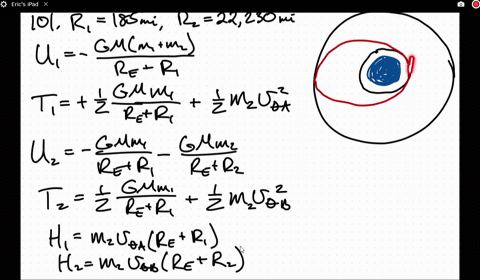 Eric's iPad
10%, R₁ = 185mi, R₂ = 22,230mi
U₁ = - GM(m₁+m₂) / (R_E + R₁)
T₁ = + 1/2 GMm₁ / (R_E+R₁) + 1/2 m₂ v_θA²
U₂ = - GMm₁ / (R_E+R₁) - GMm₂ / (R_E+R₂)
T₂ = 1/2 GMm₁ / (R_E+R₁) + 1/2 m₂ v_θB²
H₁ = m₂ v_θA (R_E + R₁)
H₂ = m₂ v_θB (R_E + R₂)